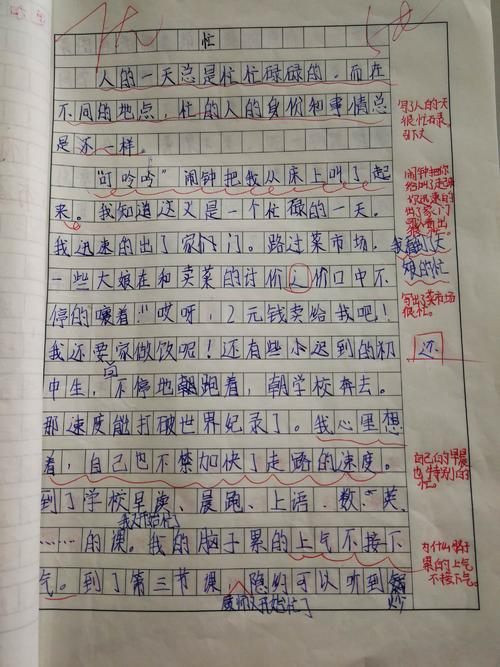 忙
人的一天总是忙忙碌碌的。而在
不同的地点，忙的人的身份和事情总
是不一样。
"叮呤呤"闹钟把我从床上叫了起
来。我知道这又是一个忙碌的一天。
我迅速的出了家门。路过菜市场，我看到了大
一些大娘在和卖菜的讨价
价口中不
停的嚷着："哎呀，2元钱卖给我吧！
我还要回家做饭呢！还有些小迟到的初
中生，不停地跑着，朝学校奔去。
那速度能打破世界纪录了。我心里想
着，自己也不禁加快了走路的速度。
到了学校早读、晨跑、上语、数、英
我开始忙
……的课。我的脑子累的上气不接下
气。到了第三节课，隐约可以听到
炒
开始忙了
写了人的一天
很忙碌。
引下文
闹钟把你
叫了起来
出了家门
娘的忙
写出了菜市场
很忙。
还
自己的早晨
也特别的
忙。
为什么脑子
累的上气
不接下气。